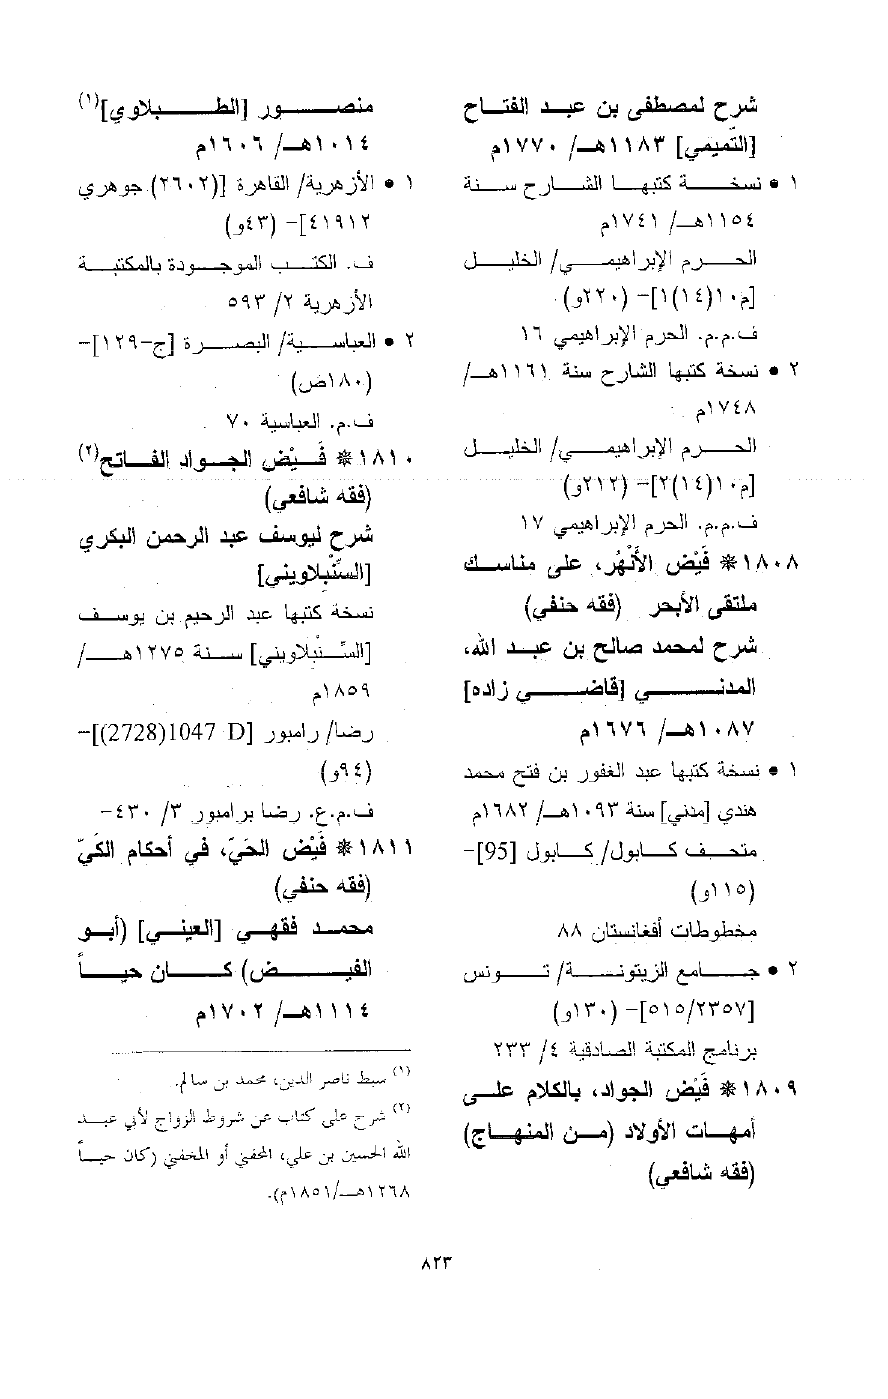 شرح لمصطفى بن عبد الفتاح
[التّميمي] ١١٨٣هـ/ ١٧٧٠م
١ • نسخة كتبها الشارح سنة
١١٥٤هـ/ ١٧٤١م
الحرم الإبراهيمي/ الخليل
[م١٠(١٤)١]- (٢٢٠و)
ف.م.م. الحرم الإبراهيمي ١٦
٢ • نسخة كتبها الشارح سنة ١١٦١هـ/
١٧٤٨م
الحرم الإبراهيمي/ الخليل
[م١٠(١٤)٢]- (٢١٢و)
ف.م.م. الحرم الإبراهيمي ١٧
١٨٠٨ * فَيْض الأَنْهُر، على مناسك
ملتقى الأبحر (فقه حنفي)
شرح لمحمد صالح بن عبد الله،
المدني [قاضي زاده]
١٠٨٧هـ/ ١٦٧٦م
١ • نسخة كتبها عبد الغفور بن فتح محمد
هندي [مدني] سنة ١٠٩٣هـ/ ١٦٨٢م
متحف كابول/ كابول [95]-
(١١٥و)
مخطوطات أفغانستان ٨٨
٢ • جامع الزيتونة/ تونس
[٥١٥/٢٣٥٧]- (١٣٠و)
برنامج المكتبة الصادقية ٤/ ٢٣٣
١٨٠٩ * فَيْض الجواد، بالكلام على
أمهات الأولاد (من المنهاج)
(فقه شافعي)
منصور [الطبلاوي](١)
١٠١٤هـ/ ١٦٠٦م
١ • الأزهرية/ القاهرة [(٢٦٠٢) جوهري
٤١٩١٢]- (٤٣و)
ف. الكتب الموجودة بالمكتبة
الأزهرية ٢/ ٥٩٣
٢ • العباسية/ البصرة [ج-١٢٩]-
(١٨٠ض)
ف.م. العباسية ٧٠
١٨١٠ * فَيْض الجواد الفاتح(٢)
(فقه شافعي)
شرح ليوسف عبد الرحمن البكري
[السِّنْبِلاويني]
نسخة كتبها عبد الرحيم بن يوسف
[السِّنْبِلاويني] سنة ١٢٧٥هـ/
١٨٥٩م
رضا/ رامبور [1047 D(2728)]-
(٩٤و)
ف.م.ع. رضا برامبور ٣/ ٤٣٠-
١٨١١ * فَيْض الحَيّ، في أحكام الكَيّ
(فقه حنفي)
محمد فقهي [العيني] (أبو
الفيض) كان حياً
١١١٤هـ/ ١٧٠٢م
(١) سبط ناصر الدين، محمد بن سالم.
(٢) شرح على كتاب عن شروط الزواج لأبي عبد
الله الحسين بن علي، المحفي أو المخفي (كان حياً
١٢٦٨هـ/١٨٥١م).
٨٢٣